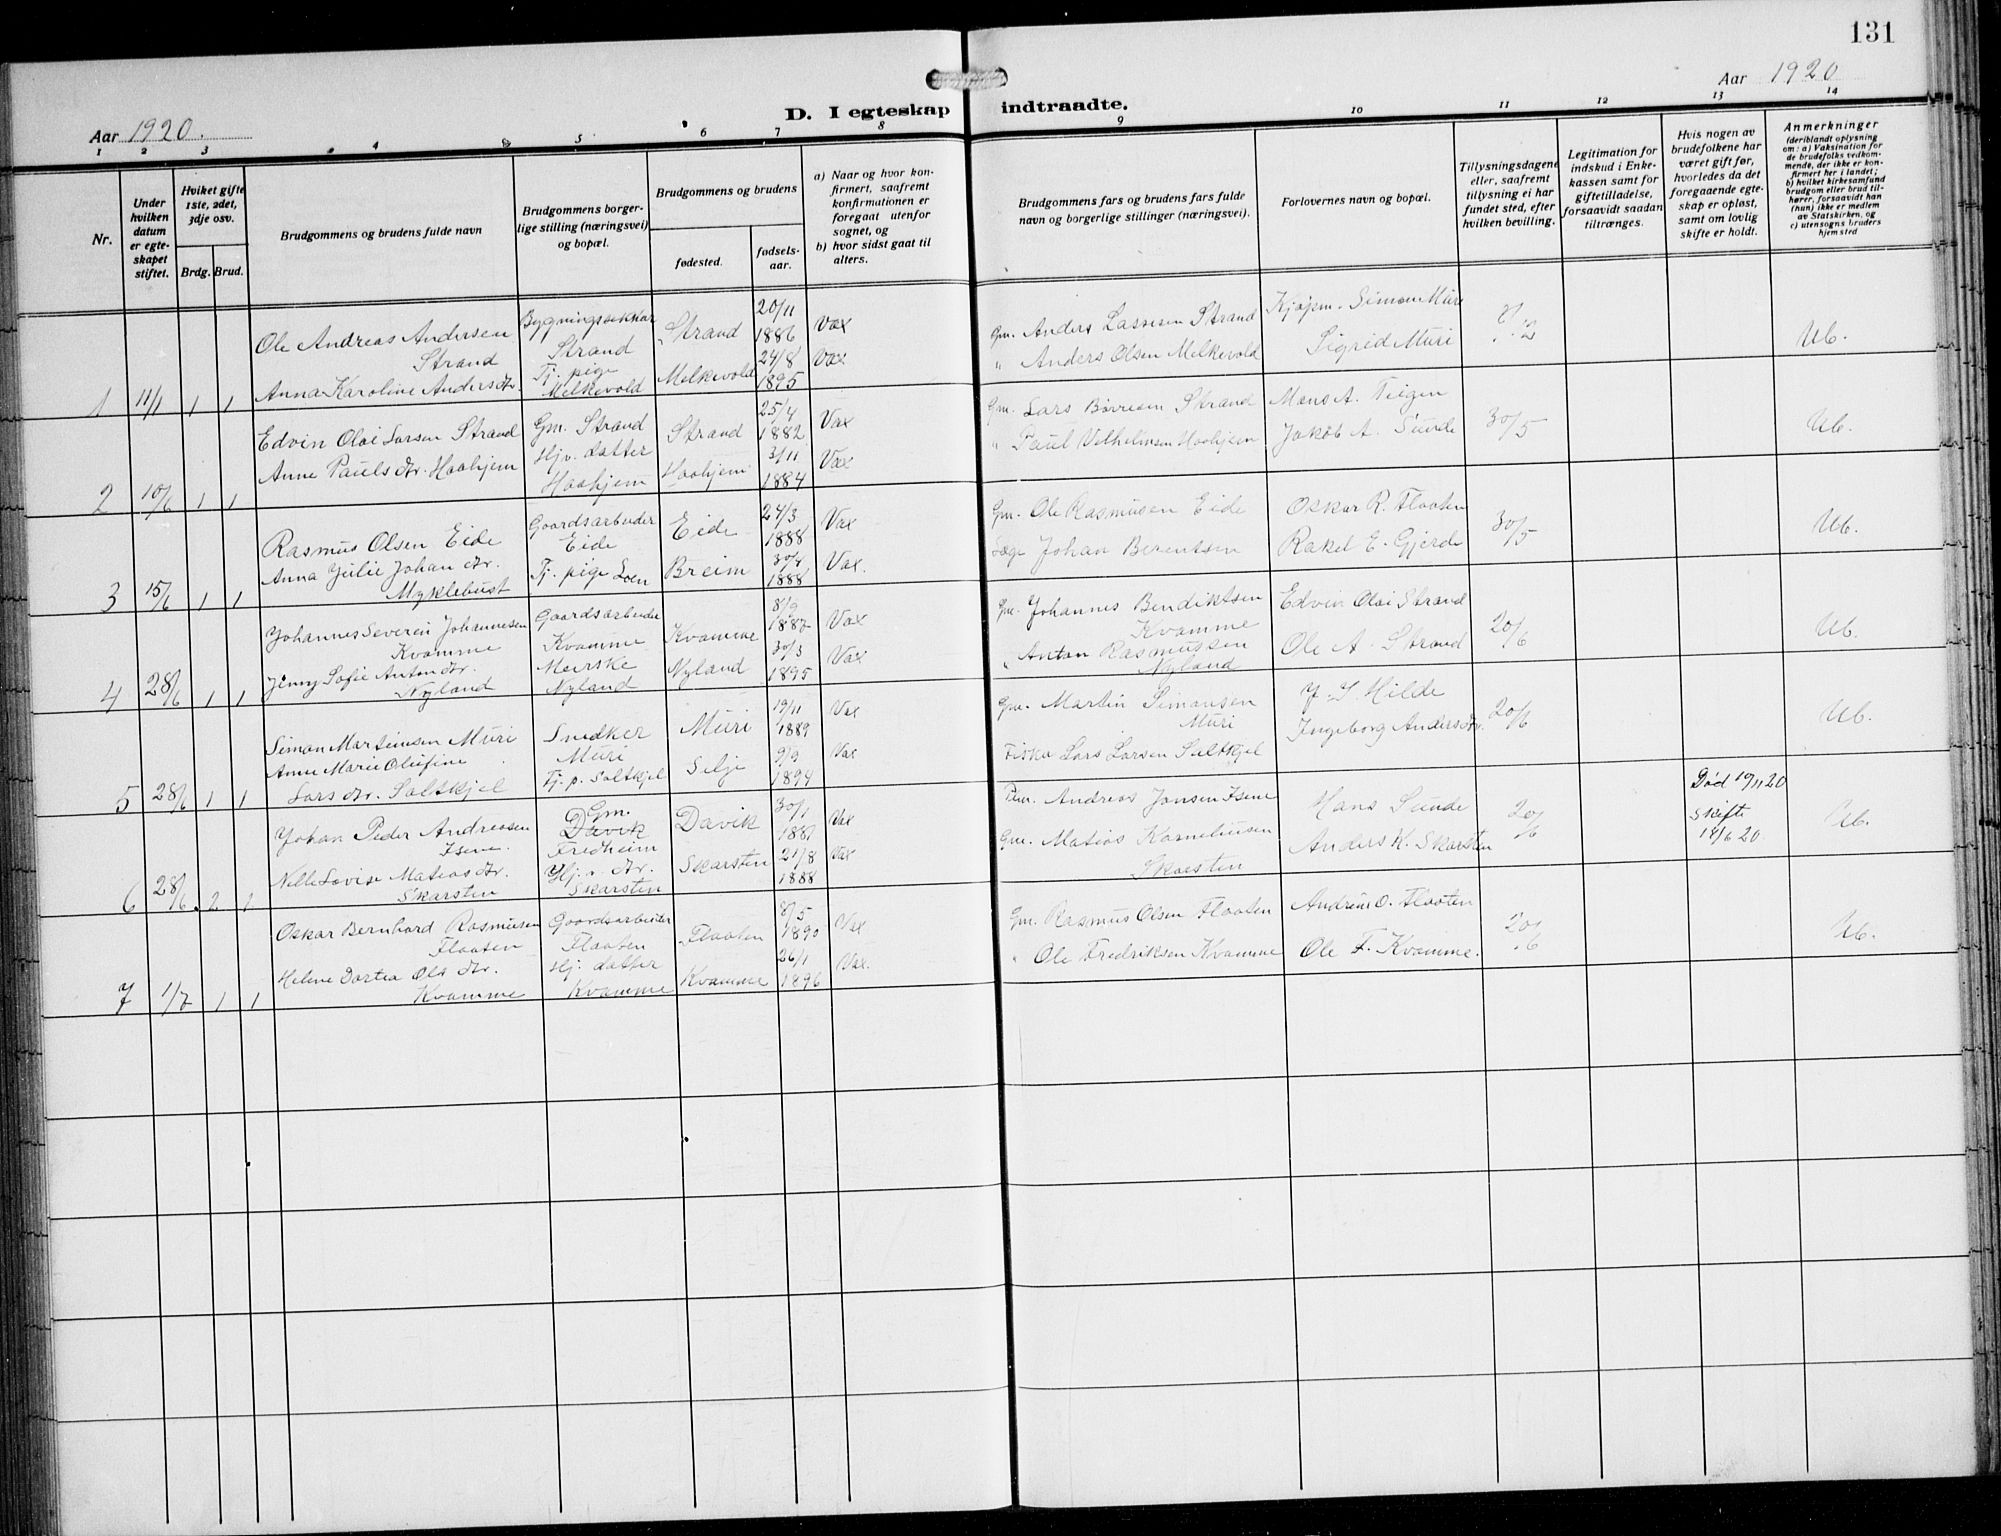 131
Aar 1920.
D. I egteskap indtraadte.
Aar 1920
1 2 3 4 5 6 7 8 9 10 11 12 13 14
Nr.
Under hvilken datum er egteskapet stiftet.
Hviket gifte 1ste, 2det, 3dje osv.
Brdg. Brud.
Brudgommens og brudens fulde navn
Brudgommens borgerlige stilling (næringsvei) og bopæl.
Brudgommens og brudens
fødested.
fødselsaar.
a) Naar og hvor konfirmert, saafremt konfirmationen er foregaat utenfor sognet, og
b) hvor sidst gaat til alters.
Brudgommens fars og brudens fars fulde navn og borgerlige stillinger (næringsvei).
Forlovernes navn og bopæl.
Tillysningsdagene eller, saafremt tillysning ei har fundet sted, efter hvilken bevilling.
Legitimation for indskud i Enkekassen samt for giftetilladelse, forsaavidt saadan tiltrænges.
Hvis nogen av brudefolkene har været gift før, hvorledes da det foregaaende egteskap er opløst, samt om lovlig skifte er holdt.
Anmerkninger
(deriblandt oplysning om: a) Vaksination for de brudefolks vedkommende, der ikke er konfirmert her i landet; b) hvilket kirkesamfund brudgom eller brud tilhører, forsaavidt han (hun) ikke er medlem av Statskirken, og c) utensogns bruders hjemsted
1 11/1 1 1
Ole Andreas Andersen Strand
Anna Karoline Anders dtr.
Strand
Tj. pige Melkevold
Strand
Melkevold
20/11 1886
24/8 1895
Vax
Vax
Gm. Anders Lassesen Strand
" Anders Olsen Melkevold
Kjøpm. Simon Muri
Sigrid Muri
Ub.
2 10/6 1 1
Edvin Olai Larsen Strand
Anne Pauls dtr. Haahjem
Gm. Strand
Hjv. datter Haahjem
Strand
Haahjem
25/4 1882
3/11 1884
Vax
Vax
Gm. Lars Børresen Strand
" Paul Vilhelmsen Haahjem
Mons A. Teigen
Jakob A. Sunde
30/5
Ub.
3 15/6 1 1
Rasmus Olsen Eide
Anna Julie Johan dtr. Myklebust
Gaardsarbeider Eide
Tj. pige Loen
Eide
Breim
24/3 1888
1888
Vax
Vax.
Gm. Ole Rasmusen Eide
Johan Berentsen
Oskar R. Flaaten
Rakel E. Gjerde
30/5
Ub.
4 28/6 1 1
Johannes Severin Johannesen Kvamme
Jenny Sofie Anton dtr. Nyland
Gaardsarbeider Kvamme
Meierske Nyland
Kvamme
Nyland
8/9 1887
30/3 1895
Vax
Vax
Gm. Johannes Bendiktsen Kvamme
" Anton Rasmussen Nyland
Edvin Olai Strand
Ole A. Strand
20/6
Ub.
5 28/6 1 1
Simon Martinusen Muri
Anne Marie Olufine Lars dtr. Saltkjel
Snedker Muri
Tj. p. Saltkjel
Muri
Selje
19/11 1889
9/9 1894
Vax
Vax
Gm. Martin Simonsen Muri
Lars Larsen Saltkjel
Hilde
Ingeborg Anders dtr.
20/6
Ub.
6 28/6 2 1
Johan Peder Andreasen Isene
Nelle Lovise Matias dtr. Skarsten
Gm. Davik Fredheim
Hj.v. dtr. Skarsten
Davik
Skarsten
30/1
21/8 1888
Vax
Vax
Andreas Jonsen Isene
Gm. Matias Korneliusen Skarsten
Hans Sunde
Anders K. Skarsten
20/6
Død
Skifte
20
Ub.
7 1/7 1 1
Oskar Bernhard Rasmusen Flaaten
Helene Dortea Ols dtr. Kvamme
Gaardsarbeider Flaaten
Hj. datter Kvamme
Flaaten
Kvamme
8/5 1890
26/1 1896
Vax
Vax.
Gm. Rasmus Olsen Flaaten
" Ole Fredriksen Kvamme
Andreas O. Flaaten
Ole F. Kvamme.
20/6
Ub.